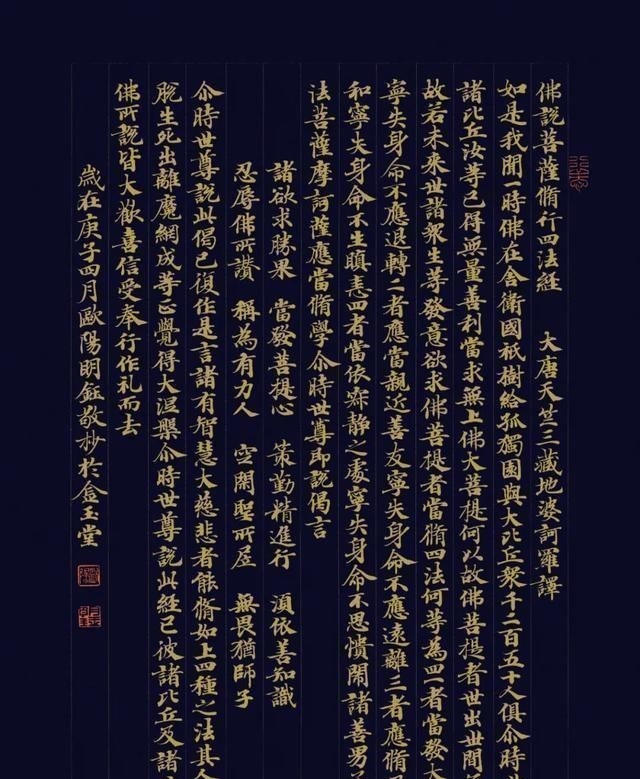 佛説菩薩脩行四法經　大唐天竺三藏地婆訶羅譯
如是我聞一時佛在舍衛國祇樹給孤獨園與大比丘衆千二百五十人俱尒時
諸比丘汝等已得無量善利當求無上佛大菩提何以故佛菩提者世出世間
故若未來世諸衆生等發意欲求佛菩提者當脩四法何等為四一者當發大
寧失身命不應退轉二者應當親近善友寧失身命不應遠離三者應脩
和寧失身命不生瞋恚四者當依寂静之處寧失身命不思憒閙諸善男
法菩薩摩訶薩應當脩學尒時世尊即説偈言
諸欲求勝果　當發菩提心　策勤精進行　須依善知識
忍辱佛所讚　稱為有力人　空閑聖所居　無畏猶師子
尒時世尊説此偈已復作是言諸有智慧大慈悲者能脩如上四種之法其
脫生死出離魔網成等正覺得大涅槃尒時世尊説此經已彼諸比丘及諸
佛所説皆大歡喜信受奉行作礼而去
歲在庚子四月歐陽明鈺敬抄於金玉堂